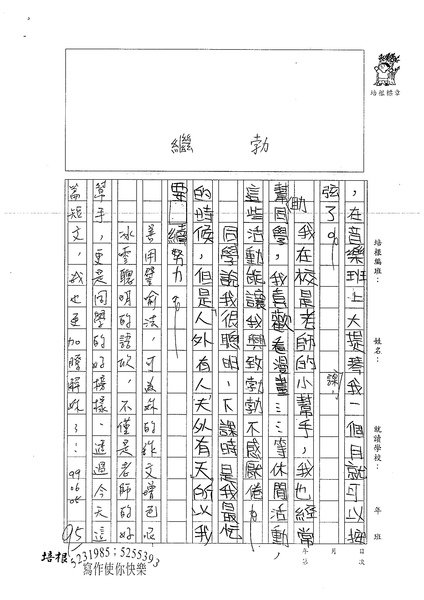 培根標章
繼　勃
培根編班：
姓名：
就讀學校：
年　班
年　月　日　次
，在音樂班上大提琴課，我一個月就可以換
弦了。
我在校是老師的小幫手，我也經常
幫助同學，我喜歡看漫畫……等休閒活動，
這些活動能讓我興致勃勃不感厭倦。
同學說我很聰明，下課時是我最忙
的時候，但是「人外有人天外有天」所以我
要繼續努力。
善用譬喻法，可為妳的作文增色呢
冰雪聰明的語欣，不僅是老師的好
幫手，更是同學的好榜樣，透過今天這
篇短文，我也更加瞭解妳了：99.06.05
95
培根 5231985；5255393
寫作使你快樂